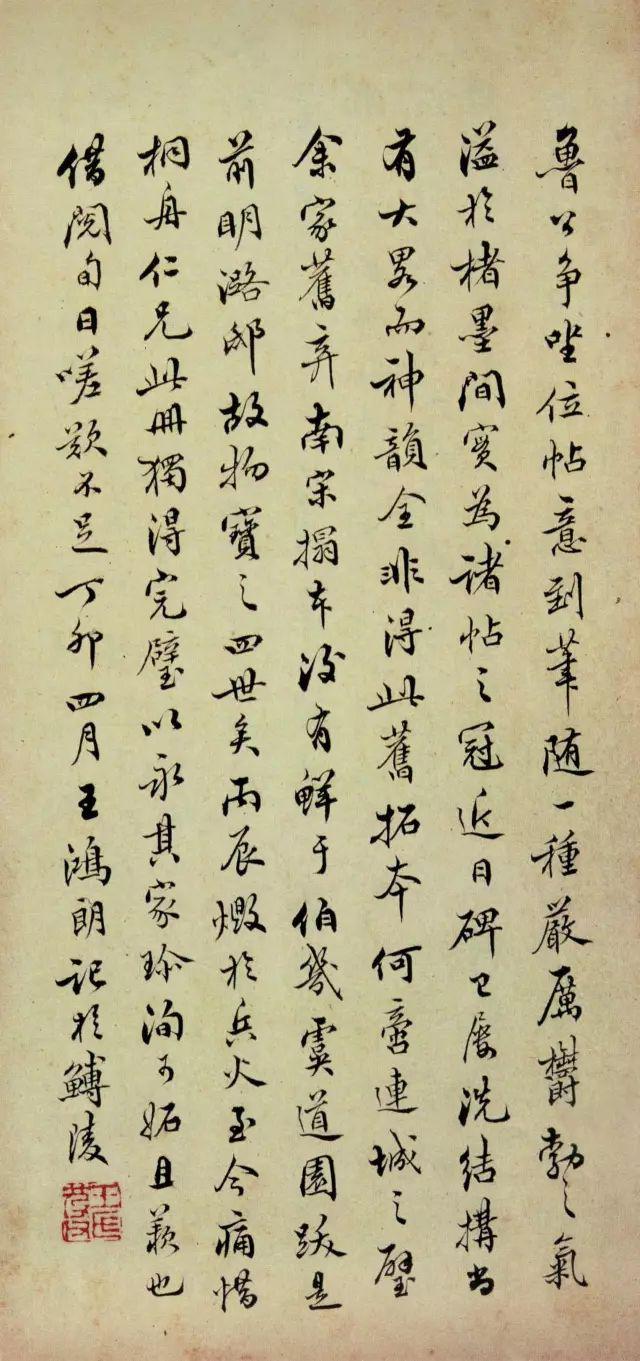 魯公争坐位帖意到筆随一種嚴厲欝勃之氣
溢於楮墨間實為諸帖之冠近日碑已屡洗結搆尚
有大畧而神韻全非得此舊拓本何啻連城之璧
余家舊弆南宋搨本後有鮮于伯幾虞道園跋是
前明潞邸故物寶之四世矣丙辰燬於兵火至今痛惜
桐舟仁兄此冊獨得完璧以永其家珎洵可妬且羡也
借閲旬日嗟歎不足丁卯四月王鴻朗記於鱄陵